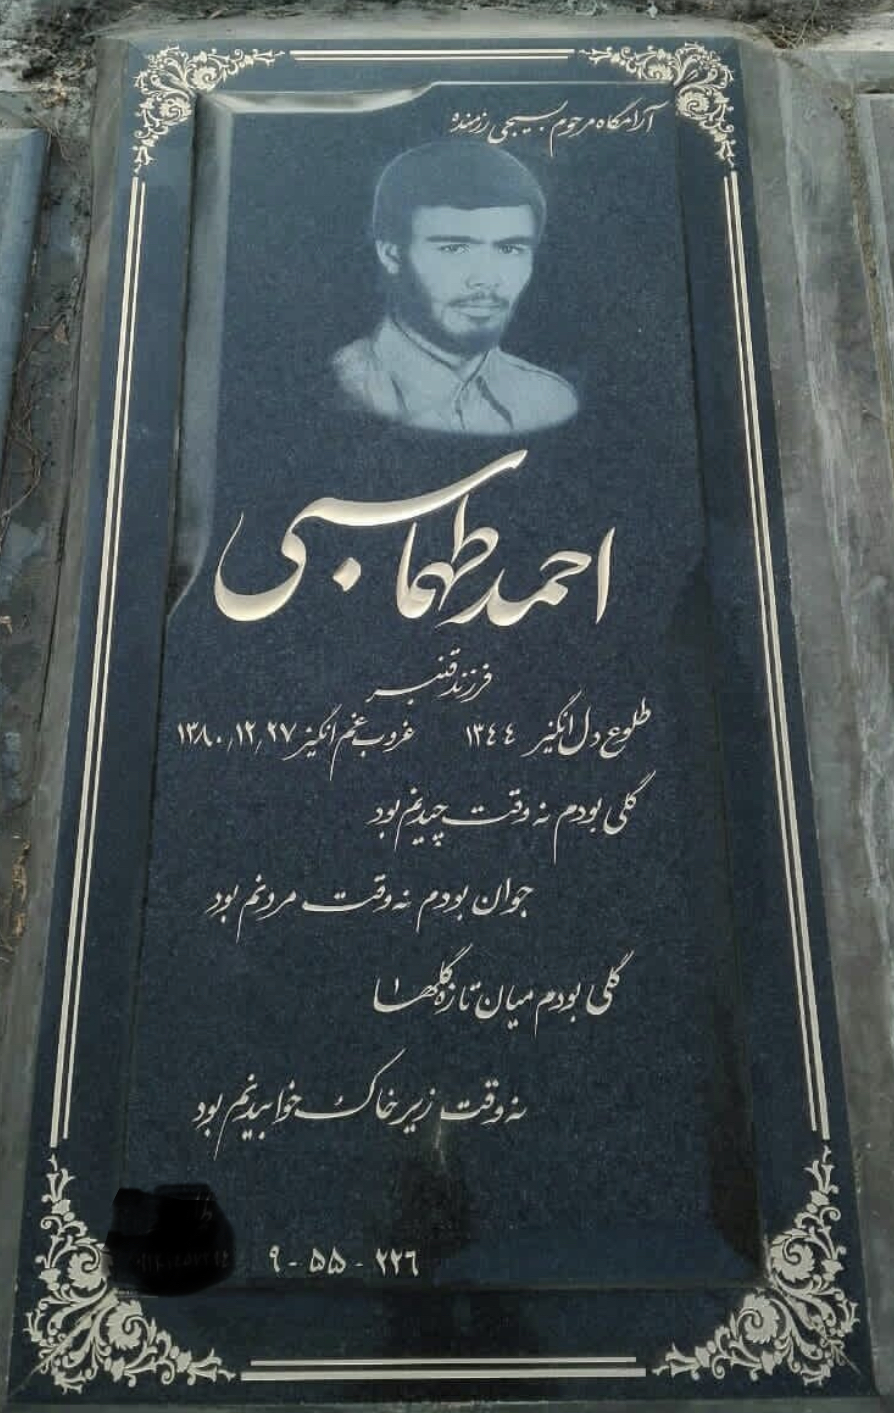 آرامگاه مرحوم بسیجی رزمنده
احمد طهماسبی
فرزند قنبر
طلوع دل انگیز ۱۳۴۴ غروب غم انگیز ۱۳۸۰,۱۲,۲۷
گلی بودم نه وقت چیدنم بود
جوان بودم نه وقت مردنم بود
گلی بودم میان تازه گلها
نه وقت زیر خاک خوابیدنم بود
۹ - ۵۵ - ۲۲۶